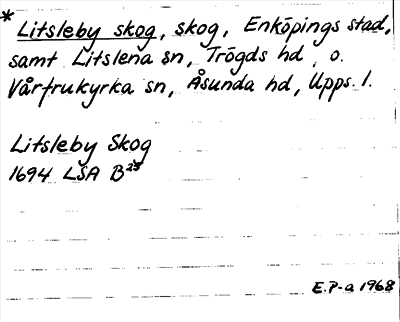 * Litsleby skog, skog, Enköpings stad,
samt Litslena sn, Trögds hd, o.
Vårfrukyrka sn, Åsunda hd, Upps. l.
Litsleby Skog
1694 LSA B²³
E.P-a 1968